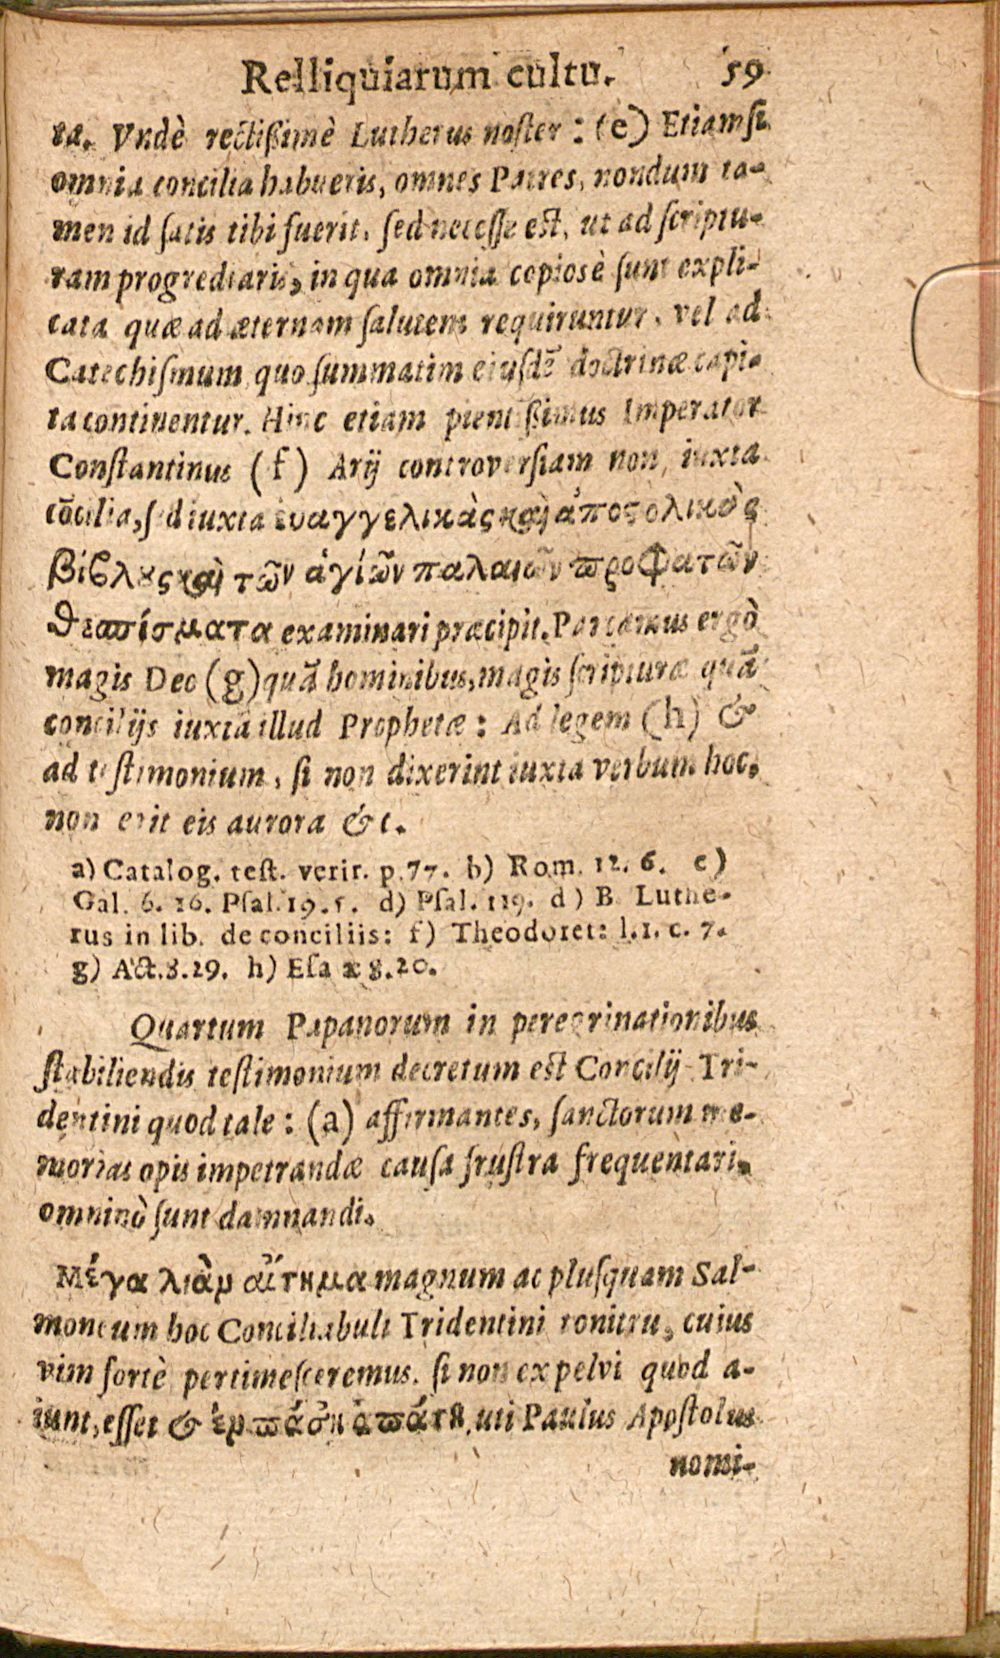 Relliquiarum cultu. 59
ta. Vndè rectißimè Lutherus noster: (e) Etiamsi
omnia concilia habueris, omnes Patres, nondum ta-
men id satis tibi fuerit, sed necesse est, ut ad scriptu-
ram progrediaris, in qua omnia copiosè sunt expli-
cata quæ ad æternam salutem requiruntur, vel ad
Catechismum, quo summatim eiusdē doctrinæ capi-
ta continentur. Hinc etiam pientißimus Imperator
Constantinus (f) Arij controversiam non iuxta
cōcilia, sed iuxta ἐυαγγελικὰς καὶ ἀποςολικὰς
βίβλȣς καὶ τῶν ἁγίῶν παλαιῶν προφατῶν
θεσπίσματα examinari præcipit. Pareamus ergò
magis Deo (g) quā hominibus, magis scripturæ quā
concilijs iuxta illud Prophetæ: Ad legem (h) &
ad testimonium, si non dixerint iuxta verbum hoc,
non erit eis aurora &c.
a) Catalog. test. verit. p. 77. b) Rom. 12. 6. c)
Gal. 6. 16. Psal. 19. 5. d) Psal. 119. d) B. Luthe-
rus in lib. de conciliis: f) Theodoret: l. 1. c. 7.
g) Act. 8. 29. h) Esa x 8. 20.
Quartum Papanorum in peregrinationibus
stabiliendis testimonium decretum est Concilij Tri-
dentini quod tale: (a) affirmantes, sanctorum me-
morias opis impetrandæ causa frustra frequentari,
omninò sunt damnandi.
Μέγα λιὰρ ἄιτημα magnum ac plusquam Sal-
moneum hoc Conciliabuli Tridentini tonitru, cuius
vim fortè pertimesceremus, si non ex pelvi quod a-
iunt, esset & ἐρ πάσῃ ἀπάτῃ, uti Paulus Apostolus
nomi-